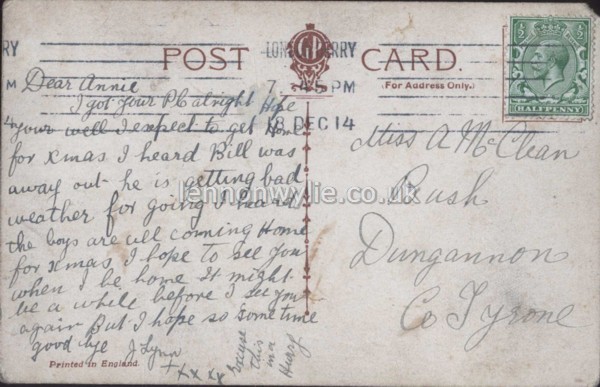 POST CARD.
LONDONDERRY
7.45 PM
18 DEC 14
(For Address Only.)
HALFPENNY
Dear Annie
I got your PC alright Hope
your well I expect to get Home
for Xmas I heard Bill was
away out he is getting bad
weather for going I heard
the boys are all coming Home
for Xmas I hope to see you
when I be home It might
be a while before I see you
again But I hope so some time
good bye J Lynn
+ x x xx
Excuse
this
in a
Hurry
Miss A McClean
Bush
Dungannon
Co Tyrone
Printed in England.
lennonwylie.co.uk